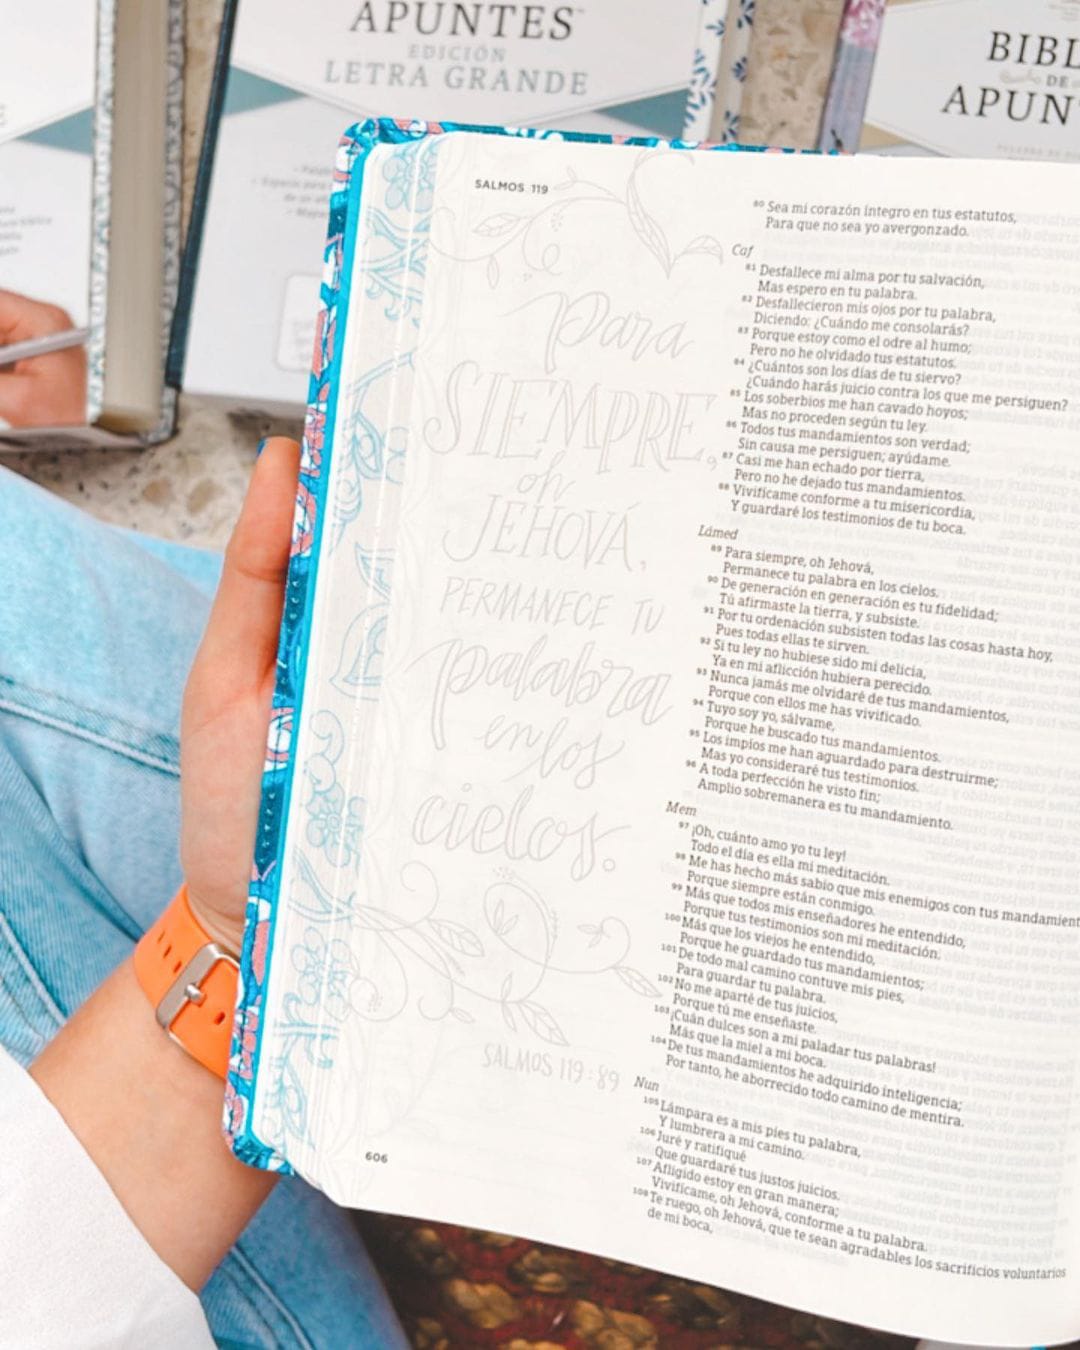 APUNTES
EDICIÓN
LETRA GRANDE
DE
SALMOS 119
para
SIEMPRE,
oh
JEHOVÁ,
PERMANECE TU
palabra
en los
cielos.
SALMOS 119:89
606
80 Sea mi corazón íntegro en tus estatutos,
Para que no sea yo avergonzado.
Caf
81 Desfallece mi alma por tu salvación,
Mas espero en tu palabra.
82 Desfallecieron mis ojos por tu palabra,
Diciendo: ¿Cuándo me consolarás?
83 Porque estoy como el odre al humo;
Pero no he olvidado tus estatutos.
84 ¿Cuántos son los días de tu siervo?
¿Cuándo harás juicio contra los que me persiguen?
85 Los soberbios me han cavado hoyos;
Mas no proceden según tu ley.
86 Todos tus mandamientos son verdad;
Sin causa me persiguen; ayúdame.
87 Casi me han echado por tierra,
Pero no he dejado tus mandamientos.
88 Vivifícame conforme a tu misericordia,
Y guardaré los testimonios de tu boca.
Lámed
89 Para siempre, oh Jehová,
Permanece tu palabra en los cielos.
90 De generación en generación es tu fidelidad;
Tú afirmaste la tierra, y subsiste.
91 Por tu ordenación subsisten todas las cosas hasta hoy,
Pues todas ellas te sirven.
92 Si tu ley no hubiese sido mi delicia,
Ya en mi aflicción hubiera perecido.
93 Nunca jamás me olvidaré de tus mandamientos,
Porque con ellos me has vivificado.
94 Tuyo soy yo, sálvame,
Porque he buscado tus mandamientos.
95 Los impíos me han aguardado para destruirme;
Mas yo consideraré tus testimonios.
96 A toda perfección he visto fin;
Amplio sobremanera es tu mandamiento.
Mem
97 ¡Oh, cuánto amo yo tu ley!
Todo el día es ella mi meditación.
98 Me has hecho más sabio que mis enemigos con tus mandamient
Porque siempre están conmigo.
99 Más que todos mis enseñadores he entendido,
Porque tus testimonios son mi meditación.
100 Más que los viejos he entendido,
Porque he guardado tus mandamientos;
101 De todo mal camino contuve mis pies,
Para guardar tu palabra.
102 No me aparté de tus juicios,
Porque tú me enseñaste.
103 ¡Cuán dulces son a mi paladar tus palabras!
Más que la miel a mi boca.
104 De tus mandamientos he adquirido inteligencia;
Por tanto, he aborrecido todo camino de mentira.
Nun
105 Lámpara es a mis pies tu palabra,
Y lumbrera a mi camino.
106 Juré y ratifiqué
Que guardaré tus justos juicios.
107 Afligido estoy en gran manera;
Vivifícame, oh Jehová, conforme a tu palabra.
108 Te ruego, oh Jehová, que te sean agradables los sacrificios voluntarios
de mi boca,